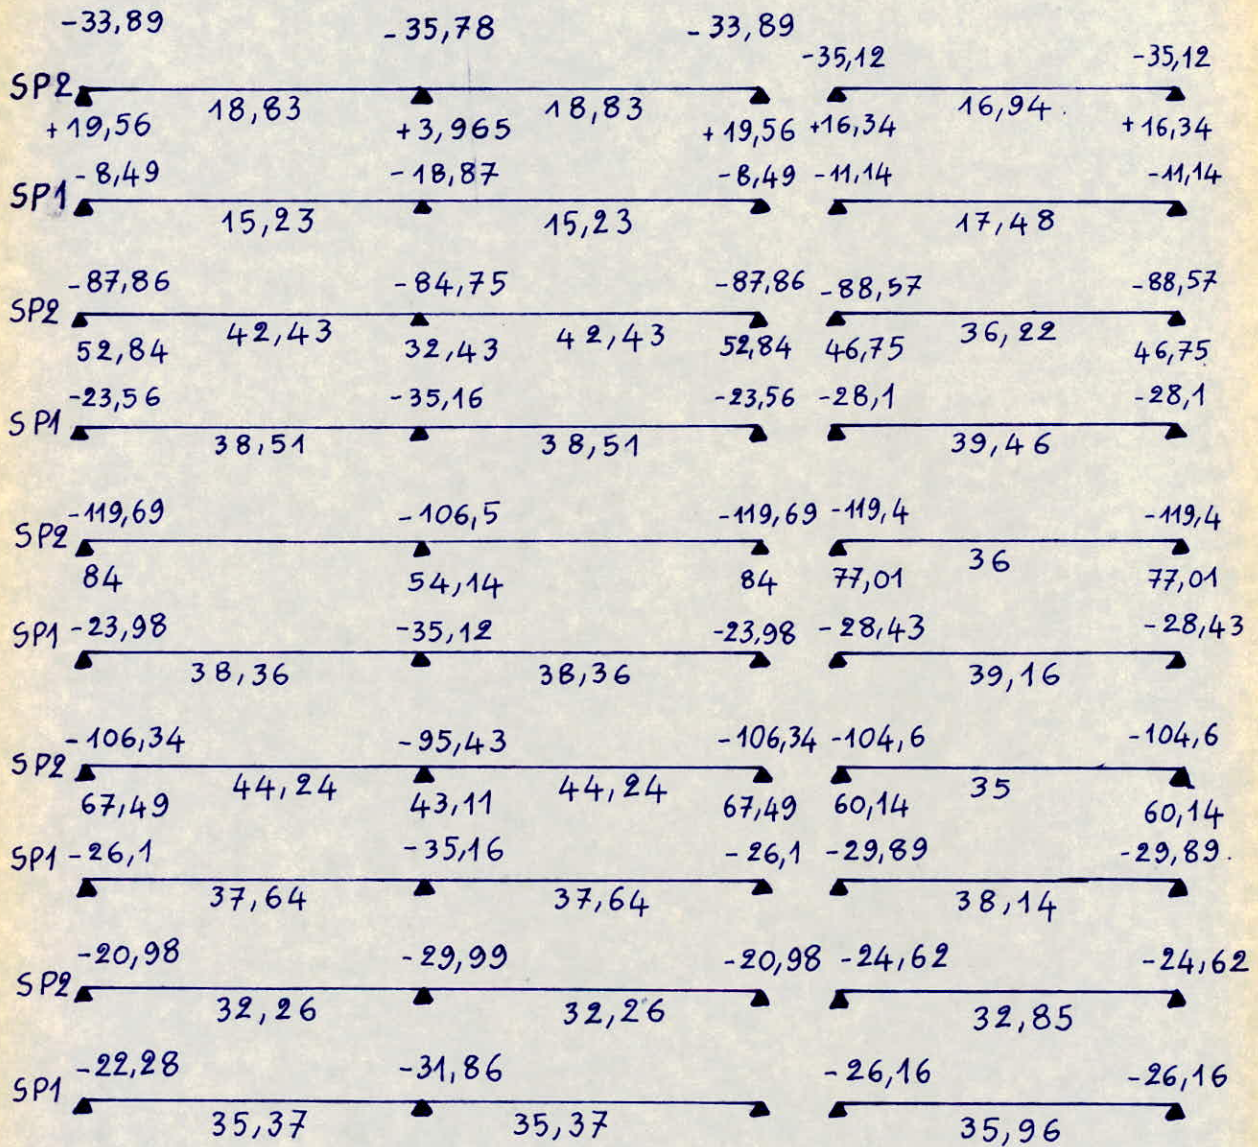 -33,89 -35,78 -33,89 -35,12 -35,12
SP2 18,83 18,83 16,94
+19,56 +3,965 +19,56 +16,34 +16,34
SP1 -8,49 -18,87 -8,49 -11,14 -11,14
15,23 15,23 17,48
-87,86 -84,75 -87,86 -88,57 -88,57
SP2 42,43 42,43 36,22
52,84 32,43 52,84 46,75 46,75
-23,56 -35,16 -23,56 -28,1 -28,1
SP1 38,51 38,51 39,46
-119,69 -106,5 -119,69 -119,4 -119,4
SP2 36
84 54,14 84 77,01 77,01
SP1 -23,98 -35,12 -23,98 -28,43 -28,43
38,36 38,36 39,16
-106,34 -95,43 -106,34 -104,6 -104,6
SP2 44,24 44,24 35
67,49 43,11 67,49 60,14 60,14
SP1 -26,1 -35,16 -26,1 -29,89 -29,89.
37,64 37,64 38,14
-20,98 -29,99 -20,98 -24,62 -24,62
SP2 32,26 32,26 32,85
-22,28 -31,86 -26,16 -26,16
SP1 35,37 35,37 35,96